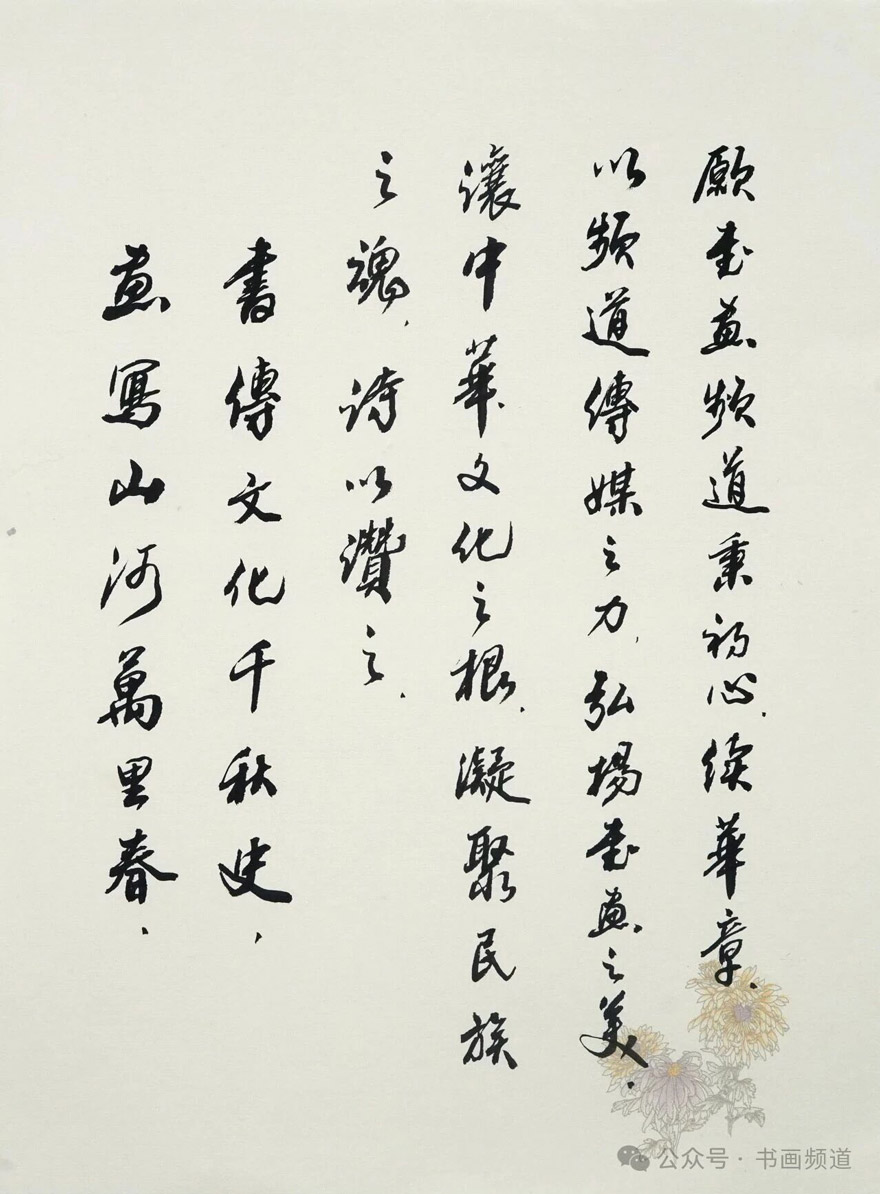 願书畫频道秉初心.续華章.
以频道傳媒之力,弘揚书畫之美.
讓中華文化之根,凝聚民族
之魂,诗以讚之.
書傳文化千秋史,
畫寫山河萬里春.
公众号·书画频道